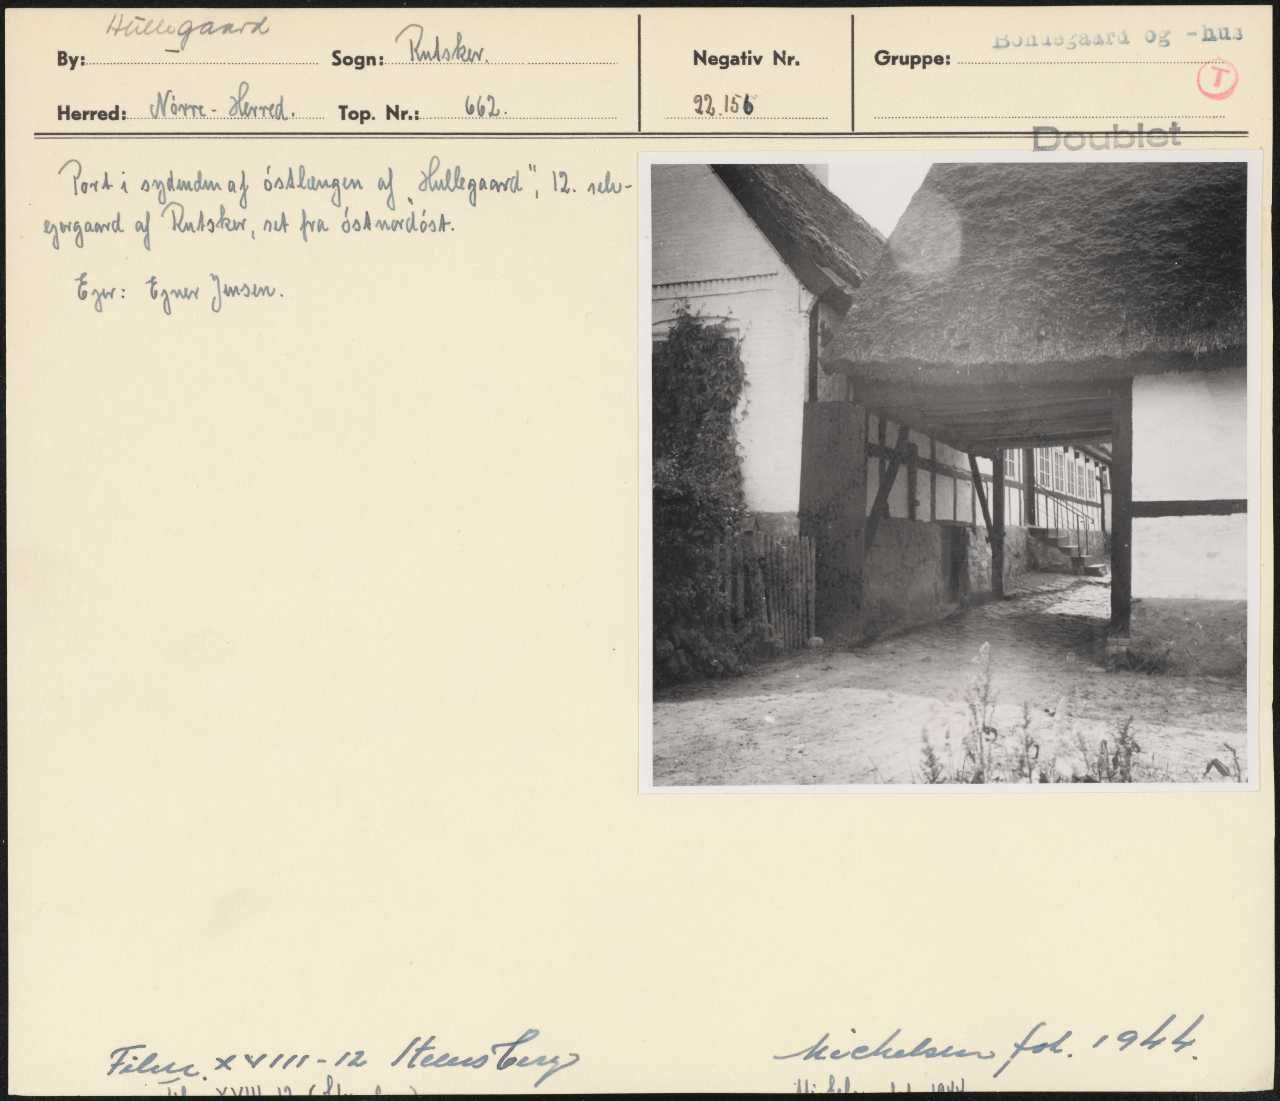 By: Hullegaard Sogn: Rutsker. Negativ Nr. Gruppe: Bondegaard og -hus
T
Herred: Nörre-Herred. Top. Nr.: 662. 22.156
Doublet
Port i sydenden af östlængen af "Hullegaard", 12. selv-
ejergaard af Rutsker, set fra östnordöst.
Ejer: Ejner Jensen.
Film. XVIII-12 Steensberg Michelsen fot. 1944.
XVIII 12